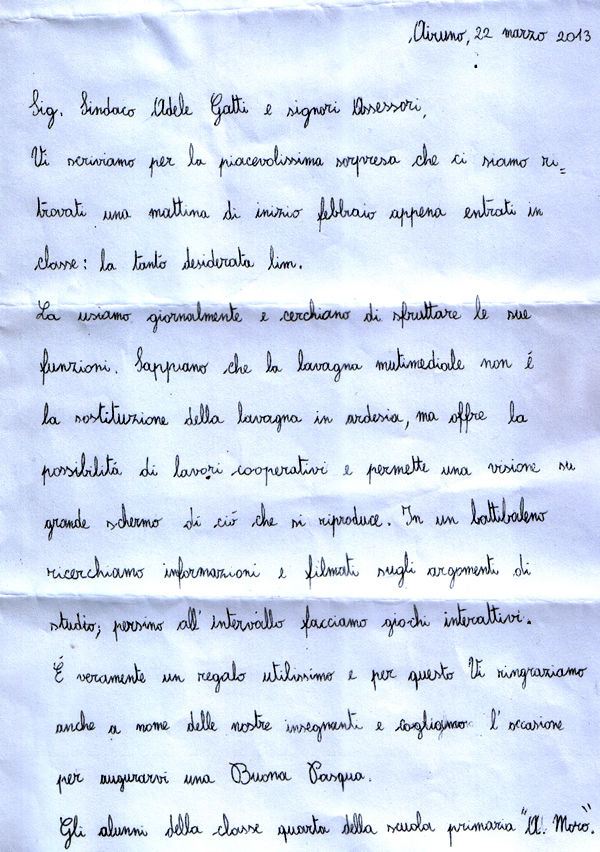 Airuno, 22 marzo 2013
Sig. Sindaco Adele Gatti e signori Assessori,
Vi scriviamo per la piacevolissima sorpresa che ci siamo ri=
trovati una mattina di inizio febbraio appena entrati in
classe: la tanto desiderata lim.
La usiamo giornalmente e cerchiano di sfruttare le sue
funzioni. Sappiano che la lavagna mutimediale non é
la sostituzione della lavagna in ardesia, ma offre la
possibilitá di lavori cooperativi e permette una visione su
grande schermo di ció che si riproduce. In un battibaleno
ricerchiamo informazioni e filmati sugli argomenti di
studio; persino all'intervallo facciamo giochi interattivi.
É veramente un regalo utilissimo e per questo Vi ringraziamo
anche a nome delle nostre insegnanti e cogliamo l'occasione
per augurarvi una Buona Pasqua.
Gli alunni della classe quarta della scuola primaria "A. Moro".